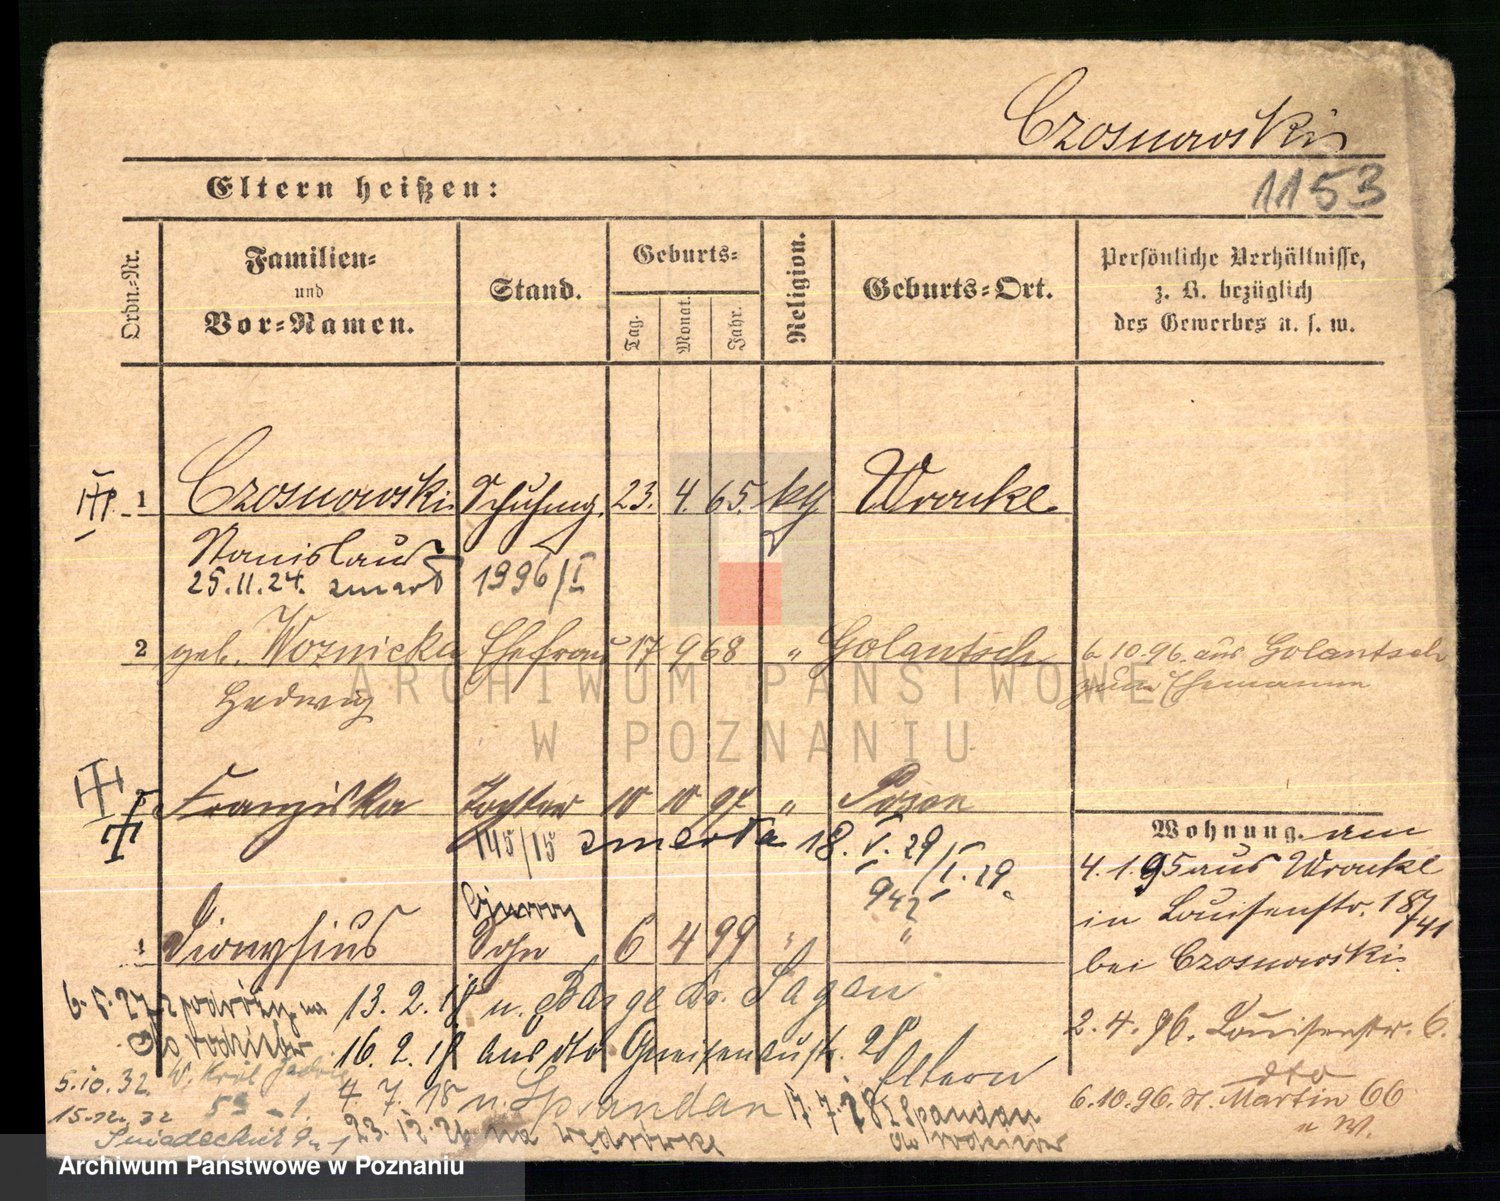 Czosnowski
Eltern heißen:
1153
Ordn.-Nr.
Familien-
und
Vor-Namen.
Stand.
Geburts-
Tag.
Monat.
Jahr.
Religion.
Geburts-Ort.
Persönliche Verhältnisse,
z. B. bezüglich
des Gewerbes u. s. w.
1 Czosnowski Schuhmg. 23. 4. 65. kth Wronke
Stanislaus
25.11.24. zmarł 1996/I
2 geb. Woznicka Ehefrau 17 9 68 " Golantsch 6 10.96. aus Golantsch
Hedwig zum Ehemann
Franziska Tochter 10 10 97 " Posen
145/15 zmarła 18. V. 29
942/I. 29
Wohnung. am
4.1.95 aus Wronke
in Louisenstr. 18/
bei Czosnowski.
Dionysius Sohn 6 4 99 " "
2.4.96. Louisenstr. 6.
dto
6.10.96. St. Martin 66
u W.
6.5.27 z podróży na
13.2.18 n. Sagan
16.2.18 aus dto Gneisenaustr. 28
Eltern
5.10.32
4.7.18 n. Spandau 17.7.28 z Spandau
15.12.32
Śniadeckich
23.12.26 na wędrówkę
ARCHIWUM PAŃSTWOWE
W POZNANIU
Archiwum Państwowe w Poznaniu